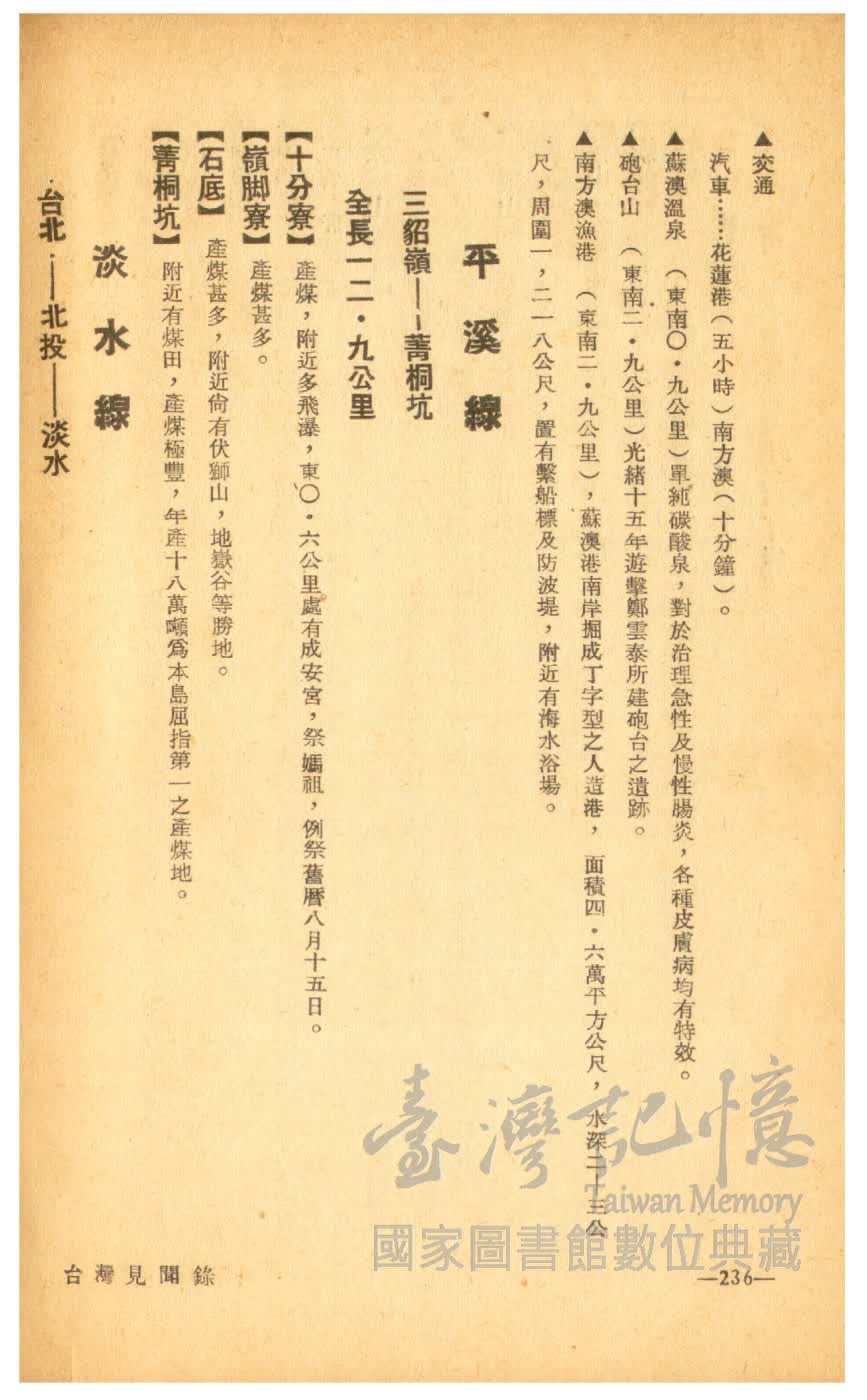 ▲交通
汽車……花蓮港(五小時)南方澳(十分鐘)。
▲蘇澳溫泉　(東南〇・九公里)單純碳酸泉,對於治理急性及慢性腸炎,各種皮膚病均有特效。
▲砲台山　(東南二・九公里)光緒十五年遊擊鄭雲泰所建砲台之遺跡。
▲南方澳漁港　(東南二・九公里),蘇澳港南岸掘成丁字型之人造港,面積四・六萬平方公尺,水深二—三公
尺,周圍一,二一八公尺,置有繫船標及防波堤,附近有海水浴場。
平溪線
三貂嶺——菁桐坑
全長一二・九公里
【十分寮】產煤,附近多飛瀑,東〇・六公里處有成安宮,祭媽祖,例祭舊曆八月十五日。
【嶺脚寮】產煤甚多。
【石底】產煤甚多,附近尙有伏獅山,地獄谷等勝地。
【菁桐坑】附近有煤田,產煤極豐,年產十八萬噸爲本島屈指第一之產煤地。
淡水線
台北——北投——淡水
台灣見聞錄
—236—
臺灣記憶
Taiwan Memory
國家圖書館數位典藏